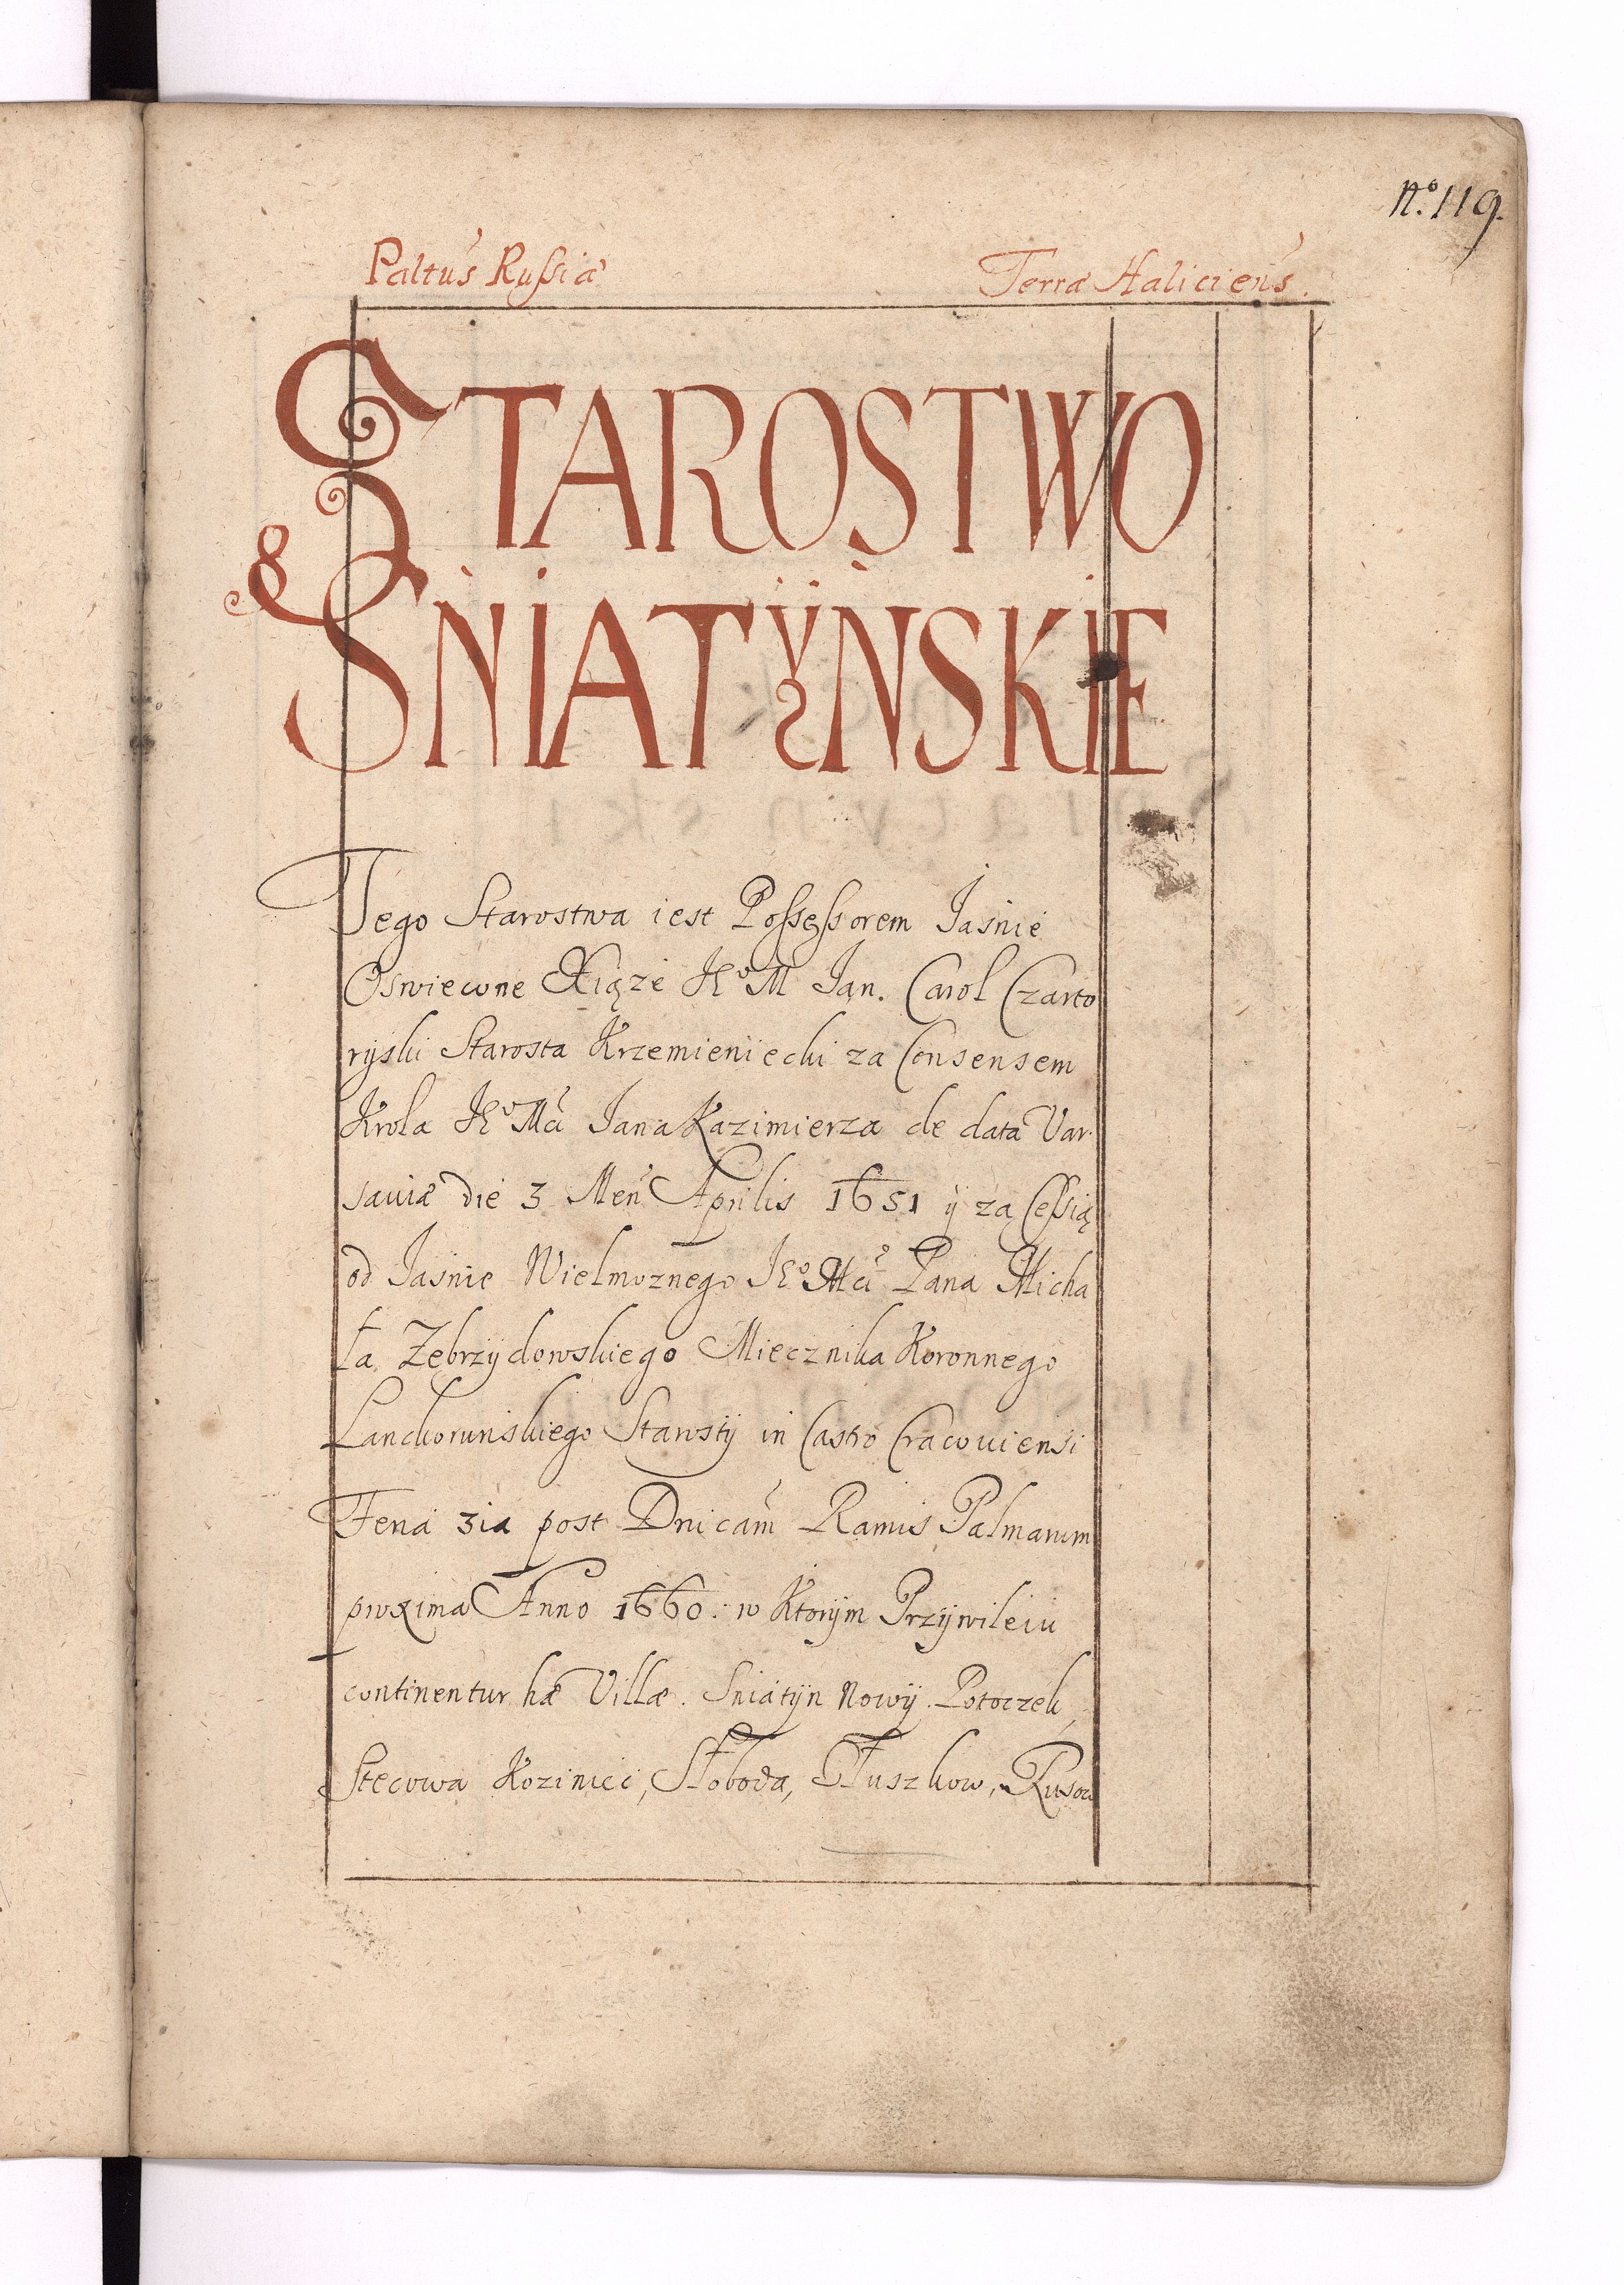 No. 119.
Paltus Russiæ
Terræ Haliciens.
STAROSTWO
SNIATYNSKIE
Tego Starostwa iest Possessorem Jasnie
Oswiecone Xiąze Je° M Jan. Carol Czarto
ryski Starosta Krzemieniecki za Consensem
Krola Je° Mci Jana Kazimierza de data Var
saviæ die 3 Men Aprilis 1651 ÿ za Cessią
od Jasnie Wielmoznego Je° Mci Pana Micha
ła Zebrzydowskiego Miecznika Koronnego
Lanckorunskiego Starosty in Castro Cracoviensi
Feria 3ia post Dnicam Ramis Palmarum
proxima Anno 1660. w Ktorÿm Przÿwileiu
continentur hæ Villæ. Sniatÿn Nowÿ. Potoczek,
Stecowa Kozinici, Słoboda, Tłuszkow, Rusow